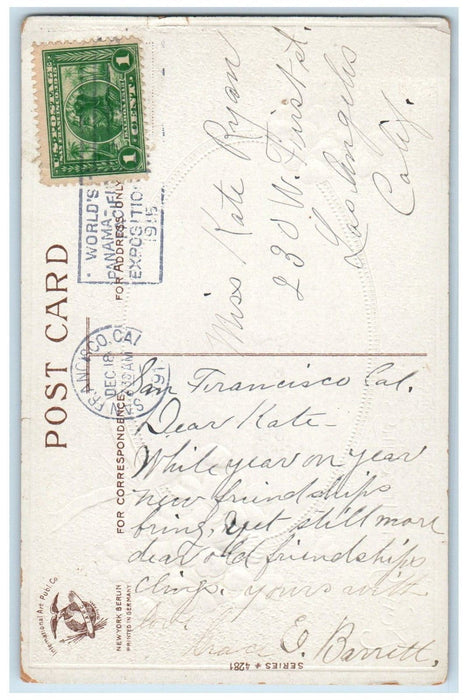 U.S. POSTAGE
SAN FRANCISCO 1915
1 CENT 1
WORLD'S
PANAMA-
EXPOSITION
1915
POST CARD
FOR ADDRESS ONLY
Miss Kate Ryan
230 W. First st.
Los Angelis
Calif.
FRANCISCO, CAL
DEC 18
30 AM
191
FOR CORRESPONDENCE
San Francisco Cal.
Dear Kate—
While year on year
new friendships
bring, yet still more
dear old friendships
clings. yours with
love
Grace E. Barrett.
International Art Publ. Co.
NEW YORK BERLIN
PRINTED IN GERMANY
SERIES # 4281